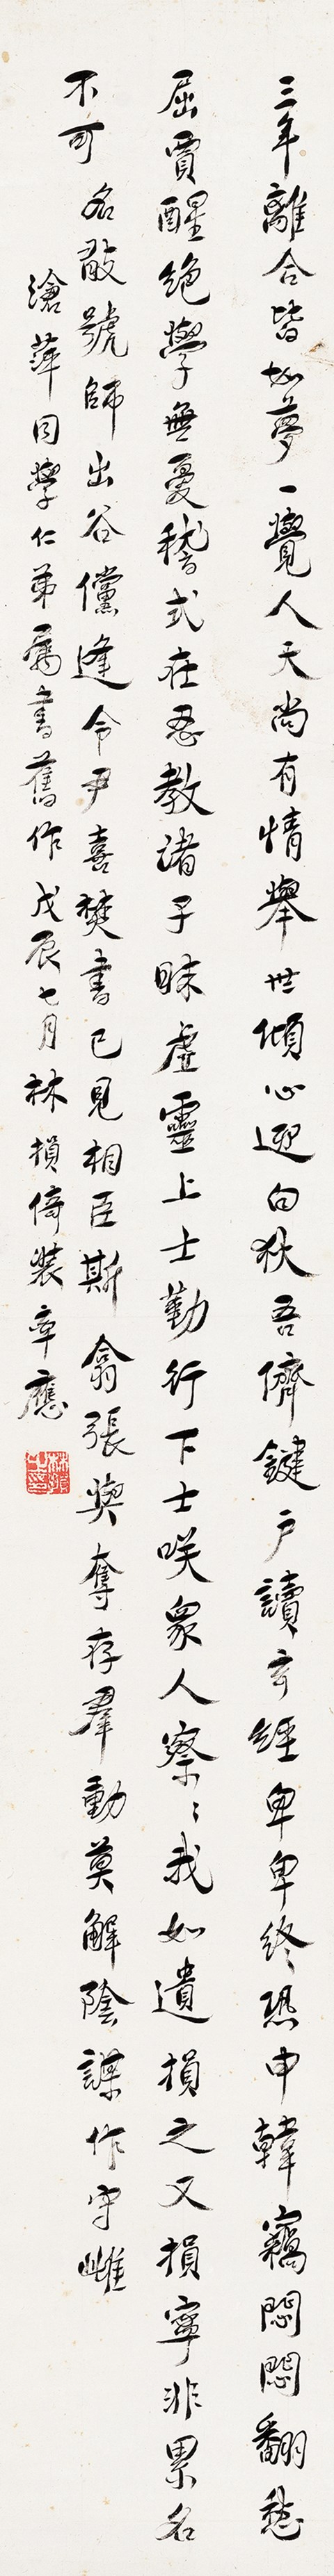 三年離合皆如夢一覺人天尚有情舉世傾心迎白狄吾儕鍵戶讀玄經卑卑終恐申韓竊悶悶翻愁
屈賈醒絕學無憂稽式在忍教諸子昧虛靈上士勤行下士咲眾人察〻我如遺損之又損寧非累名
不可名敢號師出谷儻逢令尹喜焚書已見相臣斯翕張與奪存羣動莫解陰謀作守雌
滄萍同學仁弟屬書舊作戊辰七月林損倚裝率應
林損之印